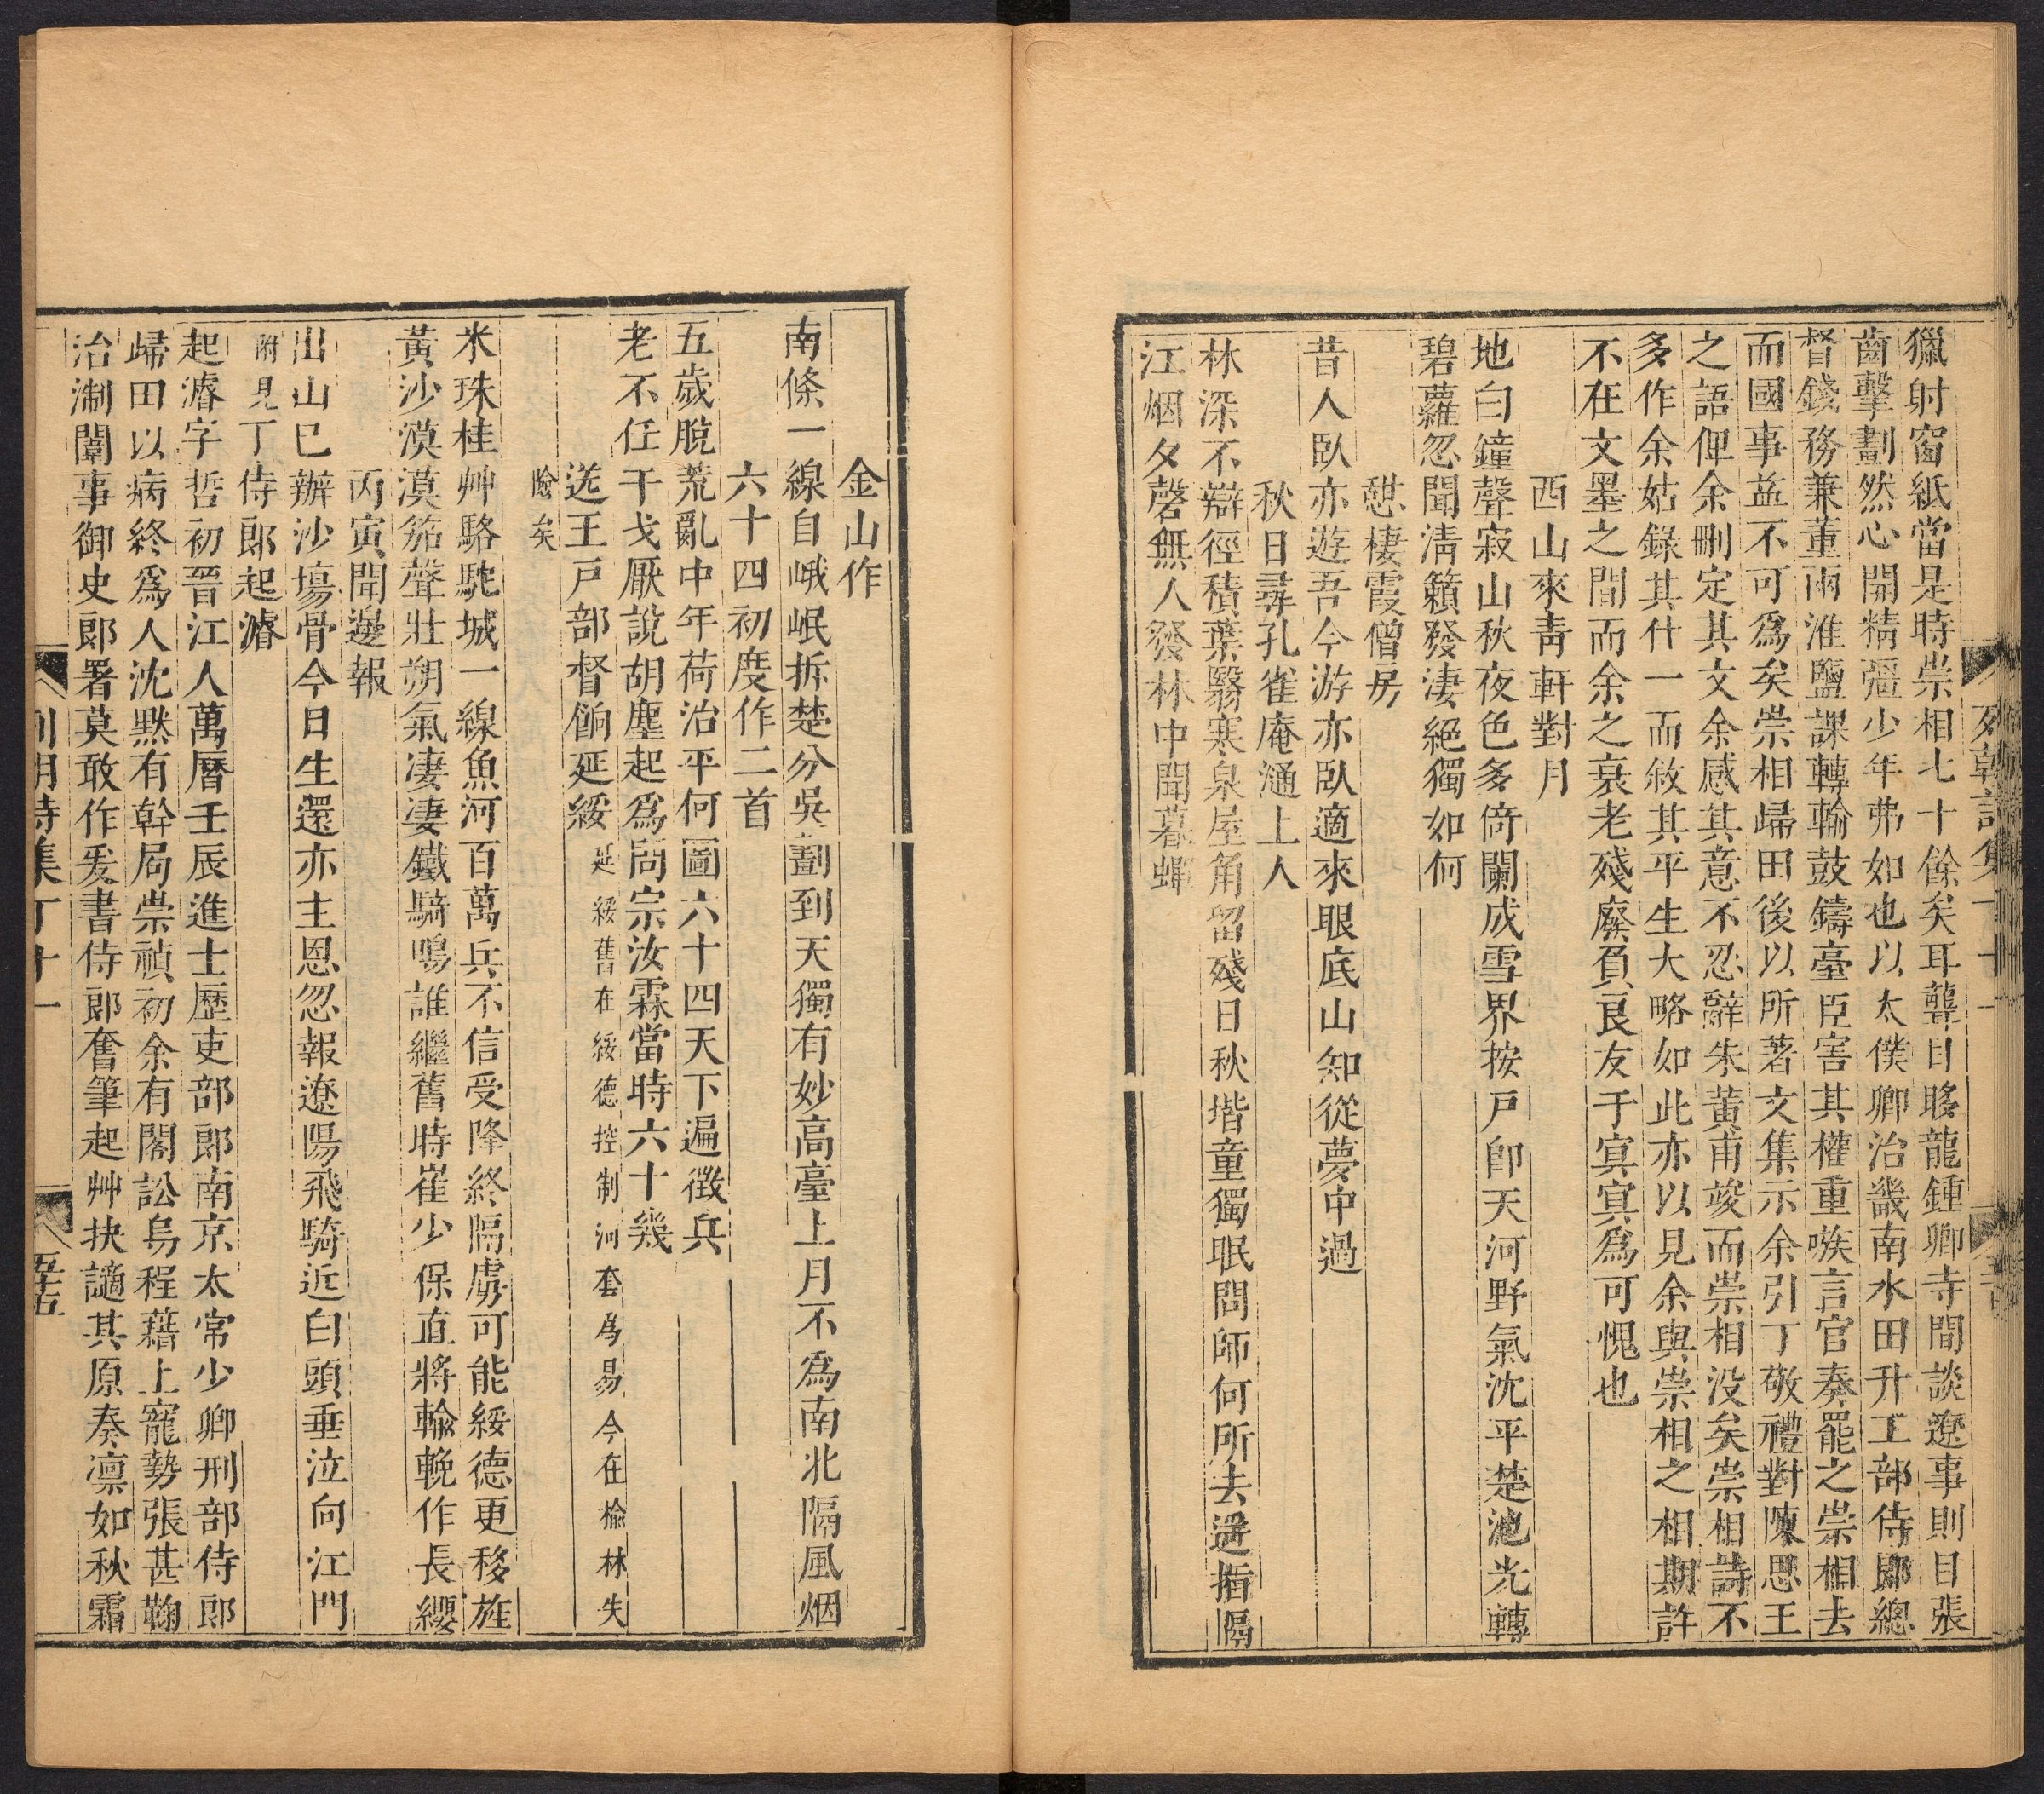 獵射窗紙當是時崇相七十餘矣耳聾目眵龍鍾卿寺間談遼事則目張
齒擊劃然心開精彊少年弗如也以太僕卿治畿南水田升工部侍郎總
督錢務兼董兩淮鹽課轉輸鼓鑄臺臣害其權重嗾言官奏罷之崇相去
而國事益不可爲矣崇相歸田後以所著文集示余引丁敬禮對陳思王
之語俾余刪定其文余感其意不忍辭朱黃甫竣而崇相没矣崇相詩不
多作余姑錄其什一而敘其平生大略如此亦以見余與崇相之相期許
不在文墨之間而余之衰老殘廢負良友于冥冥爲可愧也
西山來靑軒對月
地白鐘聲寂山秋夜色多倚闌成雪界按戸卽天河野氣沈平楚池光轉
碧蘿忽聞淸籟發淒絕獨如何
憇棲霞僧房
昔人臥亦遊吾今游亦臥適來眼底山知從夢中過
秋日尋孔雀庵通上人
林深不辯徑積葉翳寒泉屋角留殘日秋堦童獨眠問師何所去遥指隔
江烟夕磬無人發林中聞暮蟬
列朝詩集丁十一
金山作
南條一線自峨岷拆楚分吳劃到天獨有妙高臺上月不爲南北隔風烟
六十四初度作二首
五歲脫荒亂中年荷治平何圖六十四天下遍徵兵
老不任干戈厭說胡塵起爲問宗汝霖當時六十幾
送王戸部督餉延綏 延綏舊在綏德控制河套爲易今在楡林失
險矣
米珠桂艸駱駝城一線魚河百萬兵不信受降終隔虜可能綏德更移旌
黃沙漠漠笳聲壯朔氣凄凄鐵騎鳴誰繼舊時崔少保直將輸輓作長纓
丙寅聞邊報
出山已辦沙塲骨今日生還亦主恩忽報遼陽飛騎近白頭垂泣向江門
附見丁侍郎起濬
起濬字哲初晉江人萬曆壬辰進士歷吏部郎南京太常少卿刑部侍郎
歸田以病終爲人沈默有幹局崇禎初余有閣訟烏程藉上寵勢張甚鞠
治淛闈事御史郎署莫敢作爰書侍郎奮筆起艸抉讁其原奏凛如秋霜
列朝詩集丁十一 五十五